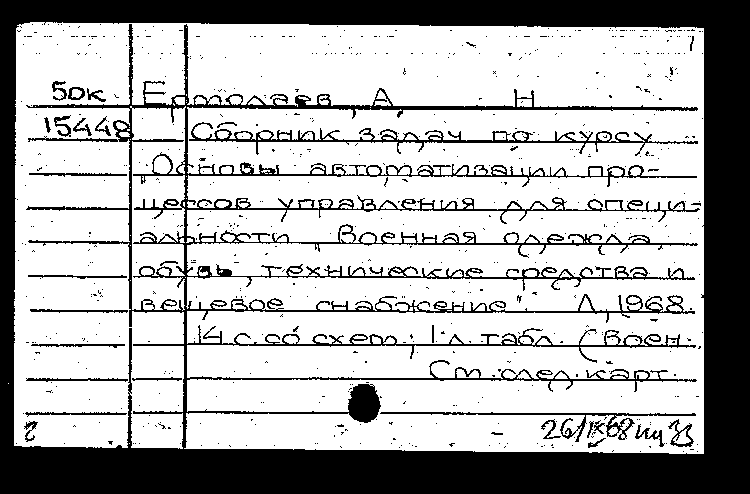 1
50к Ермолаев, А. Н
15448 Сборник задач по курсу
„Основы автоматизации про-
цессов управления для специ-
альности „Военная одежда,
обувь, технические средства и
вещевое снабжение". Л, 1968.
14 с. со схем.; 1 л. табл. (Воен.
См. след. карт.
2 26/IX68